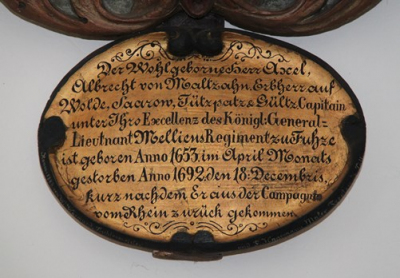 Der Wohlgeborne Herr Axel
Albrecht von Maltzahn, Erbherr auf
Wolde, Saarow, Tützpatz & Gültz, Capitain
unter Ihro Excellenz des Königl: General-
Lieutnant Mellicus Regiment zu Fuhze
ist geboren Anno 1653, im April Monats
gestorben Anno 1692, den 18: Decembris,
kurz nachdem Er aus der Campagne
vom Rhein zurück gekommen.